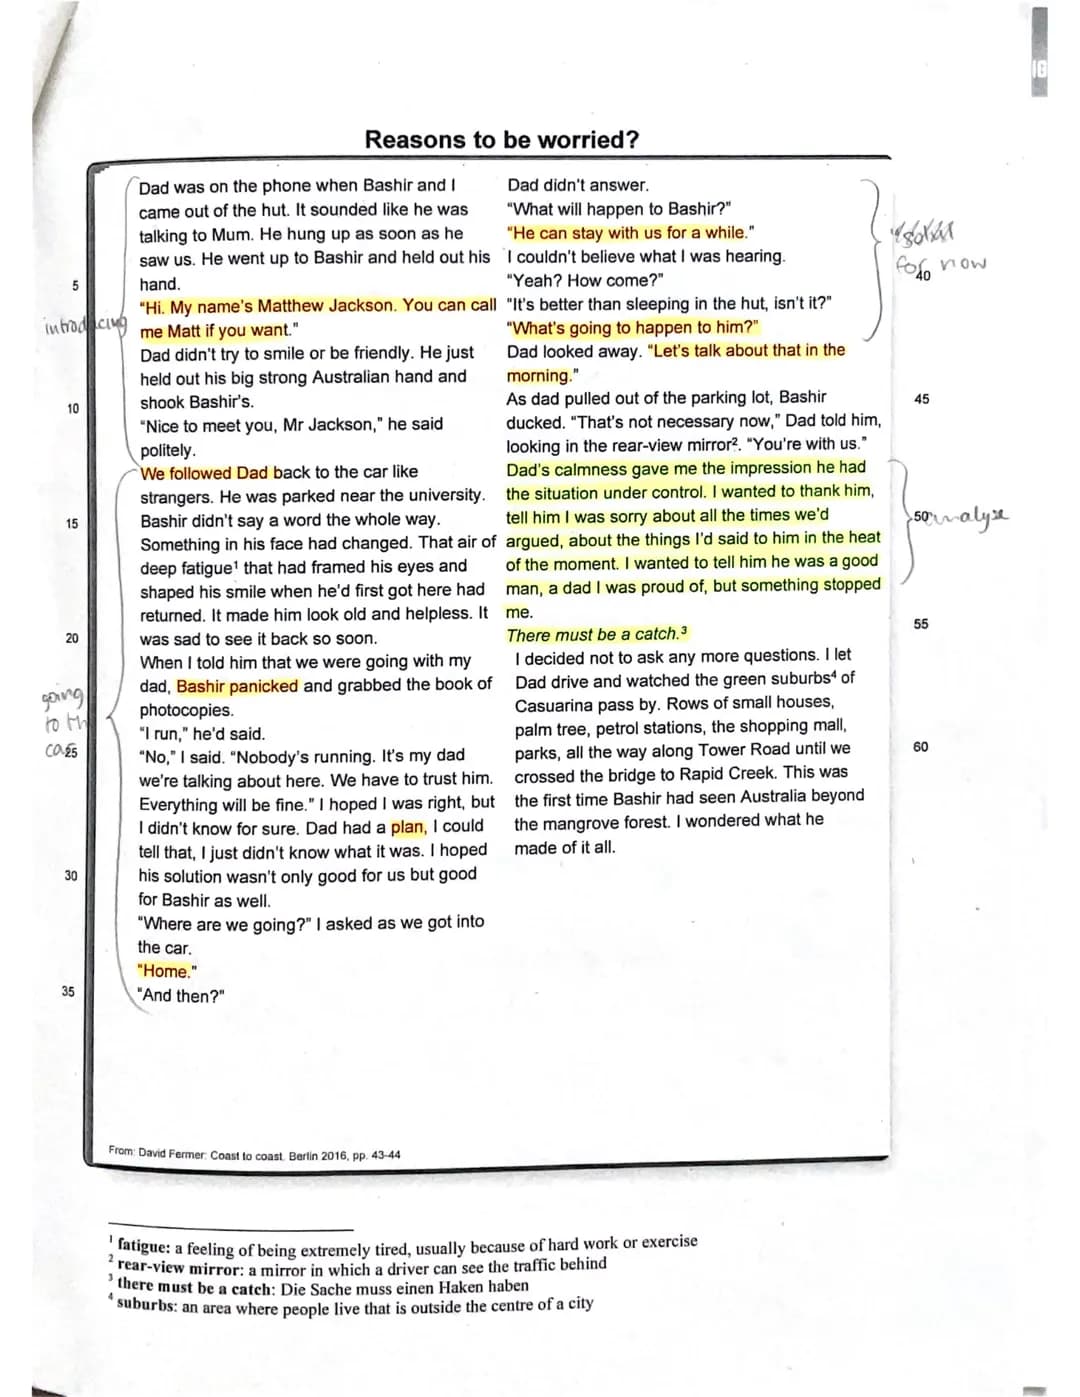 Reasons to be worried?
Dad was on the phone when Bashir and I
came out of the hut. It sounded like he was
talking to Mum. He hung up as soon as he
saw us. He went up to Bashir and held out his
5
hand.
"Hi. My name's Matthew Jackson. You can call
introducing
me Matt if you want."
Dad didn't try to smile or be friendly. He just
held out his big strong Australian hand and
10
shook Bashir's.
"Nice to meet you, Mr Jackson," he said
politely.
We followed Dad back to the car like
strangers. He was parked near the university.
15
Bashir didn't say a word the whole way.
Something in his face had changed. That air of
deep fatigue¹ that had framed his eyes and
shaped his smile when he'd first got here had
returned. It made him look old and helpless. It
20
was sad to see it back so soon.
When I told him that we were going with my
dad, Bashir panicked and grabbed the book of
photocopies.
going
to th
"I run," he'd said.
25
"No," I said. "Nobody's running. It's my dad
we're talking about here. We have to trust him.
Everything will be fine." I hoped I was right, but
I didn't know for sure. Dad had a plan, I could
tell that, I just didn't know what it was. I hoped
30
his solution wasn't only good for us but good
for Bashir as well.
"Where are we going?" I asked as we got into
the car.
"Home."
35
"And then?"
Dad didn't answer.
"What will happen to Bashir?"
"He can stay with us for a while."
I couldn't believe what I was hearing.
for now
40
"Yeah? How come?"
"It's better than sleeping in the hut, isn't it?"
"What's going to happen to him?"
Dad looked away. "Let's talk about that in the
morning."
As dad pulled out of the parking lot, Bashir
45
ducked. "That's not necessary now," Dad told him,
looking in the rear-view mirror². "You're with us."
Dad's calmness gave me the impression he had
the situation under control. I wanted to thank him,
tell him I was sorry about all the times we'd
50
analyse
argued, about the things I'd said to him in the heat
of the moment. I wanted to tell him he was a good
man, a dad I was proud of, but something stopped
me.
55
There must be a catch.³
I decided not to ask any more questions. I let
Dad drive and watched the green suburbs⁴ of
Casuarina pass by. Rows of small houses,
palm tree, petrol stations, the shopping mall,
parks, all the way along Tower Road until we
60
crossed the bridge to Rapid Creek. This was
the first time Bashir had seen Australia beyond
the mangrove forest. I wondered what he
made of it all.
From: David Fermer: Coast to coast. Berlin 2016, pp. 43-44
¹ fatigue: a feeling of being extremely tired, usually because of hard work or exercise
² rear-view mirror: a mirror in which a driver can see the traffic behind
³ there must be a catch: Die Sache muss einen Haken haben
⁴ suburbs: an area where people live that is outside the centre of a city